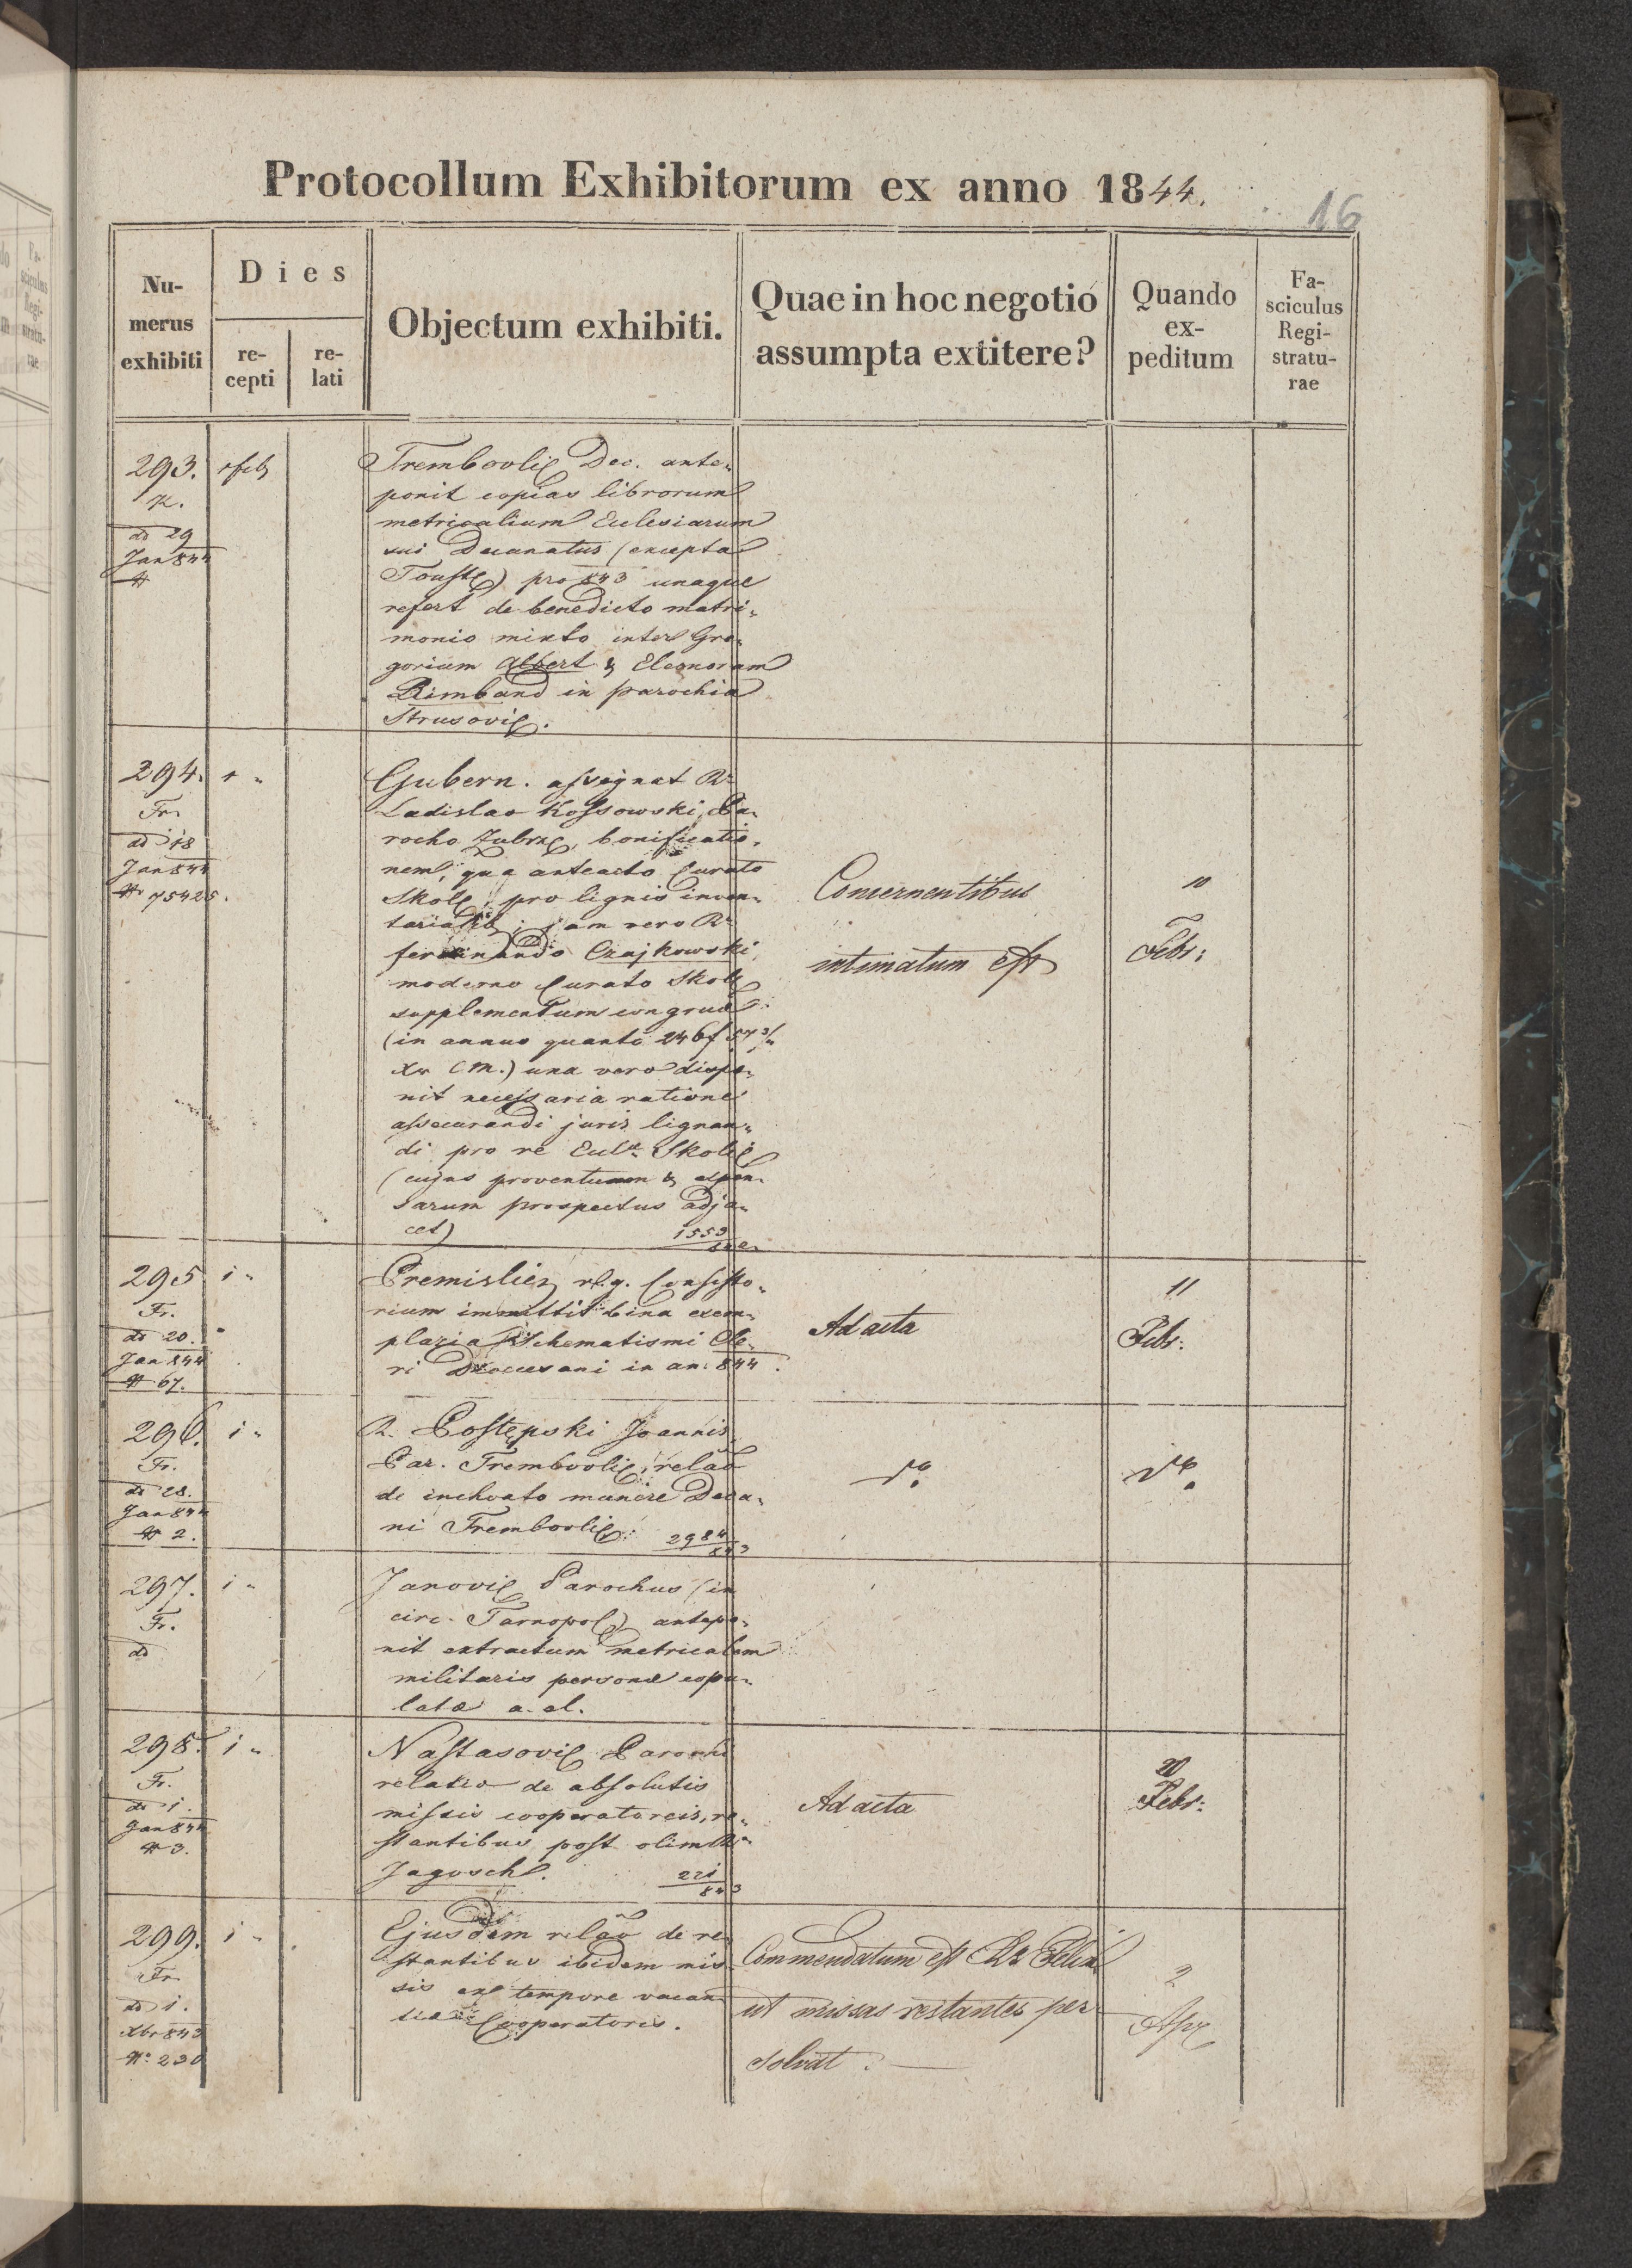 Protocollum Exhibitorum ex anno 1844.
16
Numerus exhibiti
Dies
recepti
relati
Objectum exhibiti.
Quae in hoc negotio assumpta extitere?
Quando expeditum
Fasciculus Registraturae
293.
dd 29
Jan 844
Dec. ante„
ponit copias librorum
metricalium Eclesiarum
sui Decanatus (excepta
pro 843 unaque
refert de benedicto matri„
monio mixto inter Gre„
gorium Albert & Eleonoram
Rimband in parochia
294.
Fr.
dd 18
Jan 844
Nr 75425.
Gubern. assignat Rr
Ladislao Kossowski, Pa„
rocho bonificatio„
nem, qua anteacto Curato
pro lignis inven„
jam vero Rr
ferdinando Czajkowski,
moderno Curato
supplementum congruae
(in annuo quanto 246f 57 3/4
xr CM.) una vero dispo„
nit necessaria ratione
assecurandi juris lignan„
di pro re
(cujus proventuum & expen„
sarum prospectus adja„
cet) 1553
Concernentibus
intimatum est
10
Febr:
295. i „
Fr.
dd 20.
Jan 844
N 67.
Consisto„
rium immittit bina exem„
plaria Schematismi Cle„
ri Dioecesani in an: 844.
Ad acta
11
Febr:
296. i „
Fr.
dd 28.
Jan 844
N 2.
R. Postępski Joannis,
Par. relao
de inchoato munere Deca„
ni 2984/843
297. i „
Fr.
dd
Parochus (in
circ. antepo„
nit extractum metricalem
militaris personae copu„
latae a. al.
298. i „
Fr.
dd i.
Jan 844
N 3.
Parochi
relatio de absolutis
missis cooperatoreis, re„
stantibus post olim
Jagosch. 221/843
Ad acta
20
Febr:
299. i „
Fr.
dd i.
Xbr 843
Ejusdem relao de re„
stantibus ibidem mis„
sis ex tempore vacan„
Cooperatoris.
Commendatum est
ut missas restantes per
solvat.
2
Apr